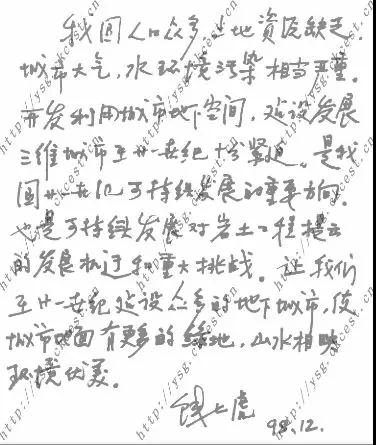 我国人口众多，土地资源缺乏，
城市大气，水环境污染相当严重。
开发利用城市地下空间，建设发展
三维城市至廿一世纪十分紧迫。是我
国廿一世纪可持续发展的重要方向。
也是可持续发展对岩土工程提出
的发展机遇和重大挑战。让我们
至廿一世纪建设众多的地下城市，使
城市地面有更多的绿地，山水相映
环境优美。
钱七虎
98.12.
http://ysg.ckcest.cn